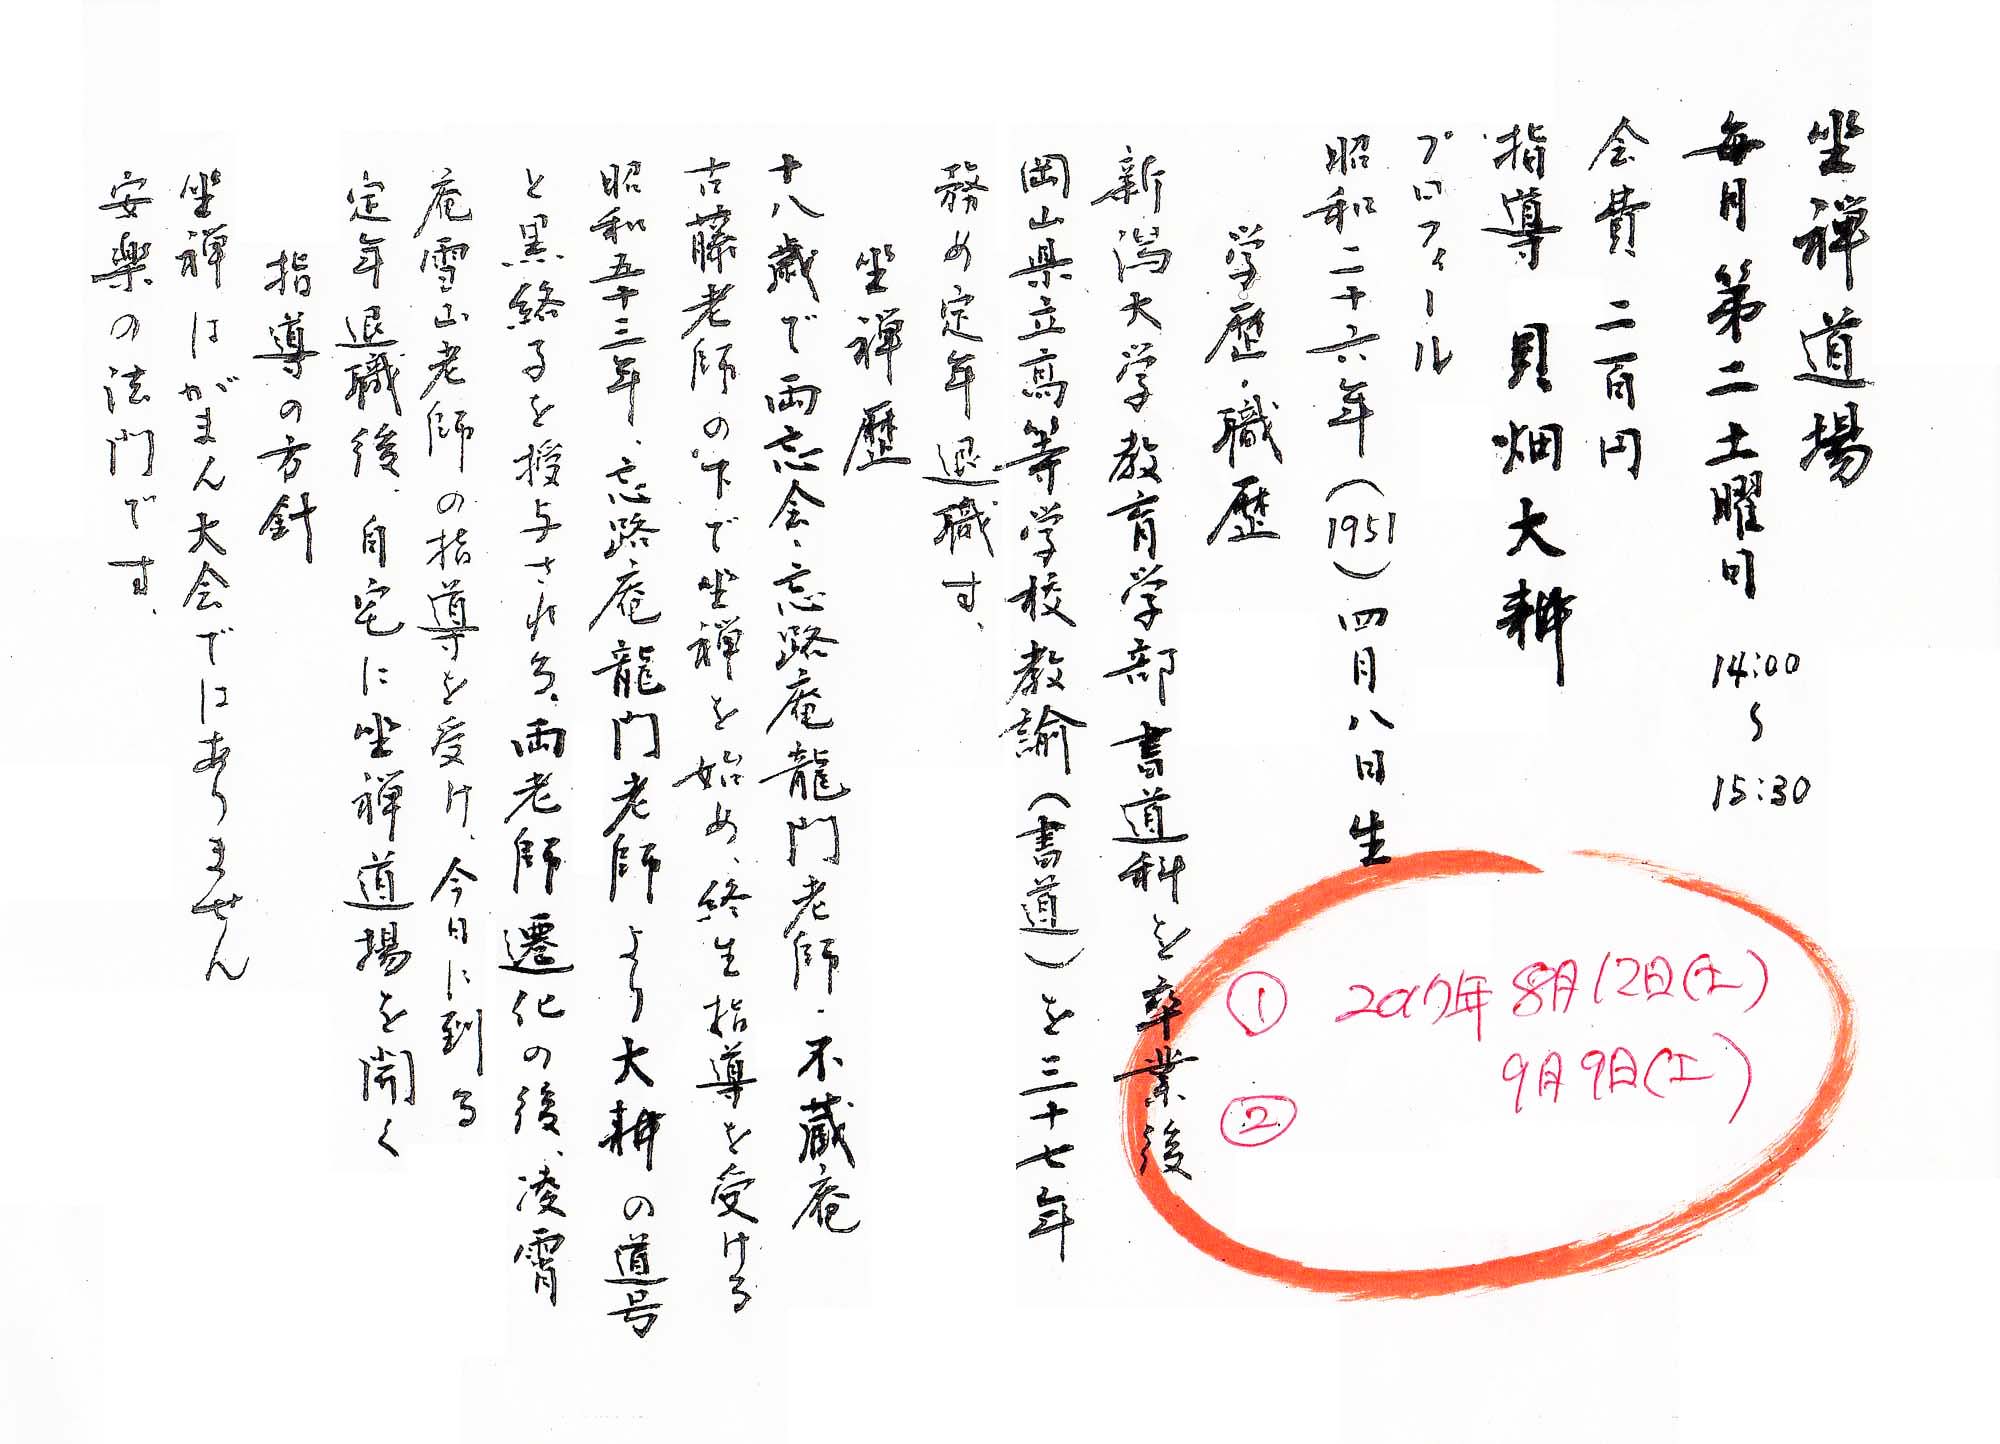 坐禅道場
毎月第二土曜日 14:00～15:30
会費 二百円
指導 貝畑大耕
プロフィール
昭和二十六年（1951）四月八日生
学歴・職歴
新潟大学教育学部書道科を卒業後
岡山県立高等学校教諭（書道）を三十七年
務め定年退職す、
坐禅歴
十八歳で両忘会、忘路庵龍門老師・不蔵庵
古藤老師の下で坐禅を始め、終生指導を受ける
昭和五十三年、忘路庵龍門老師より大耕の道号
と黒絡子を授与される、両老師遷化の後、凌霄
庵雪山老師の指導を受け、今日に到る
定年退職後、自宅に坐禅道場を開く
指導の方針
坐禅はがまん大会ではありません
安楽の法門です、
① 2017年8月12日(土)
② 9月9日(土)